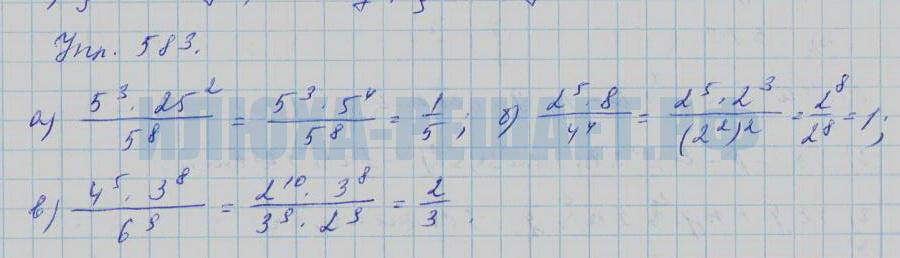 Упр. 583.
а) (5³ · 25²)/5⁸ = (5³ · 5⁴)/5⁸ = 1/5; б) (2⁵ · 8)/4⁴ = (2⁵ · 2³)/(2²)² = 2⁸/2⁸ = 1;
в) (4⁵ · 3⁸)/6⁹ = (2¹⁰ · 3⁸)/(3⁹ · 2⁹) = 2/3.
ИЛЮХА-РЕШАЕТ.РФ